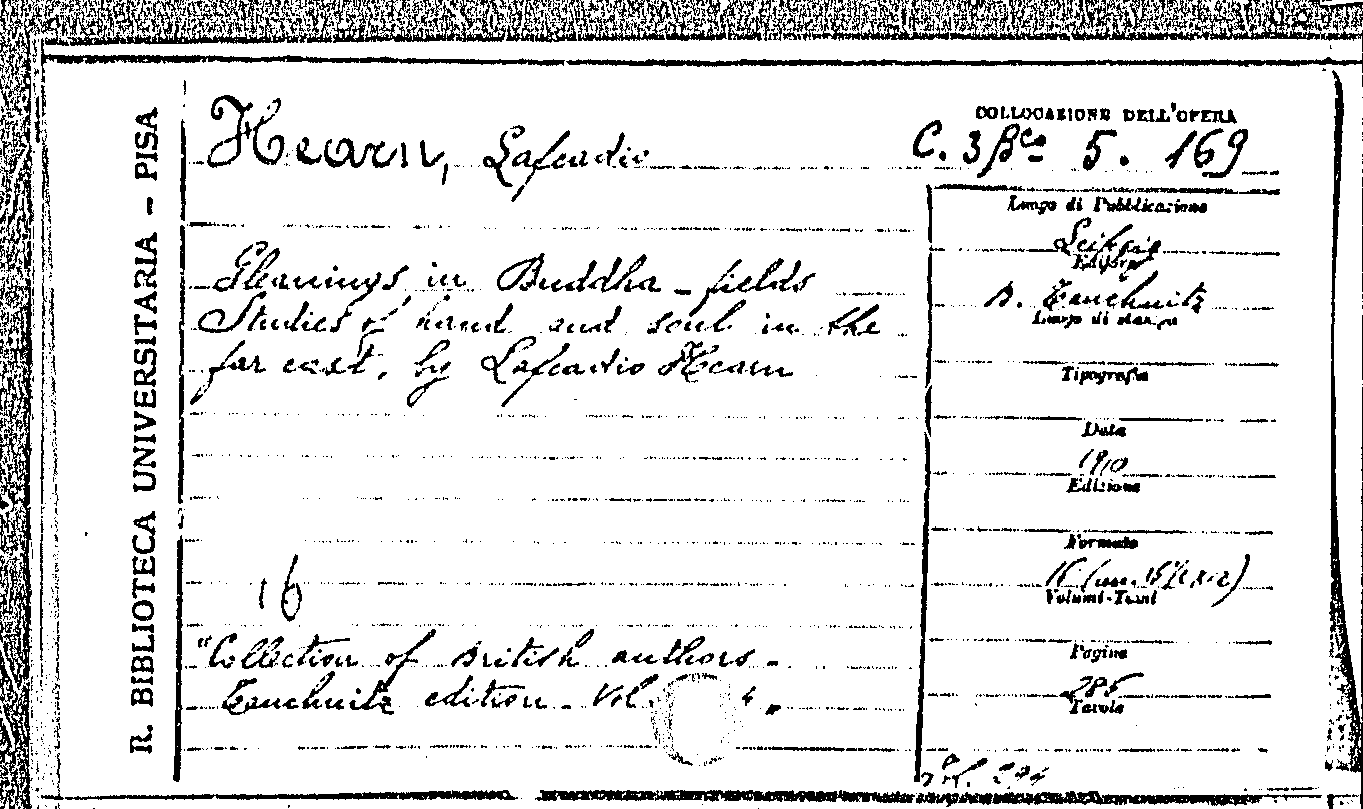 R. BIBLIOTECA UNIVERSITARIA - PISA
Hearn, Lafcadio
Gleanings in Buddha-fields
Studies of hand and soul in the
far east, by Lafcadio Hearn
16
"Collection of British authors -
Tauchnitz edition. Vol.
COLLOCAZIONE DELL'OPERA
C. 3 5. 169
Luogo di Pubblicazione
Leipzig
Editore
B. Tauchnitz
Luogo di stampa
Tipografia
Data
1910
Edizione
Formato
16
Volumi-Tomi
Pagine
285
Tavole